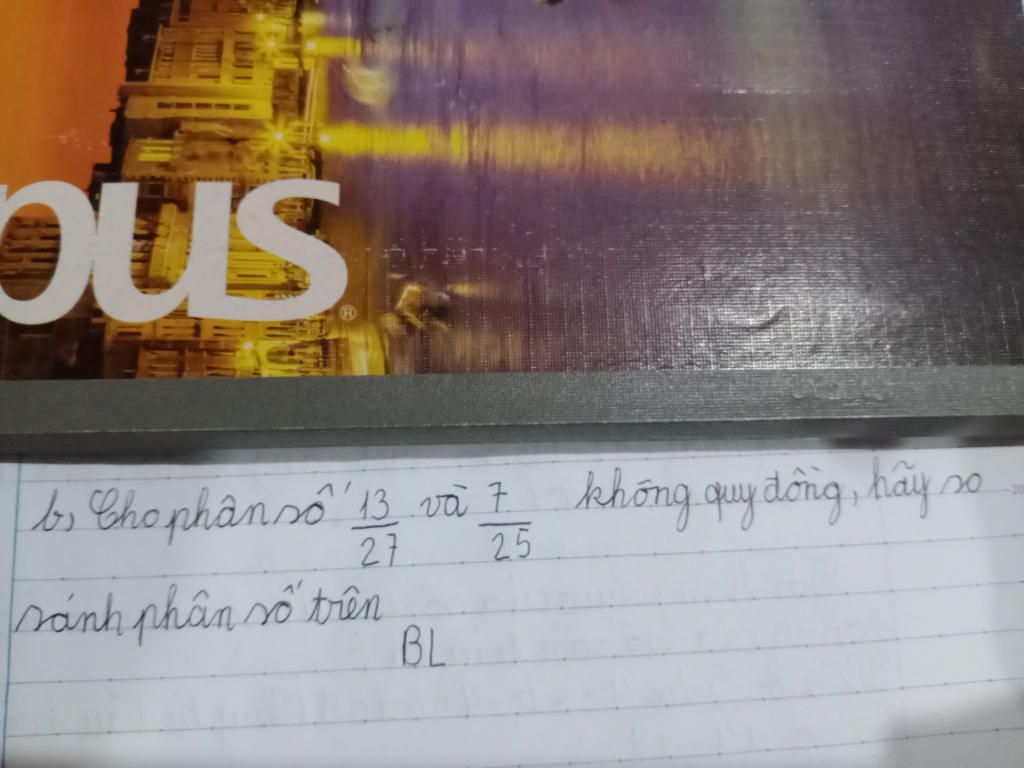 pus®
b, Cho phân số 13/27 và 7/25 không quy đồng, hãy so
sánh phân số trên
BL